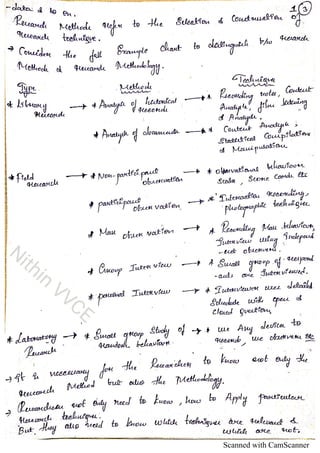 1 3
- data & so on.
Research Methods refer to the Selection & Construction of
research technique.
→ Consider the foll Example Chart to distinguish b/w research
Methods & research Methodology.
Type Methods Technique
* Library research → * Analysis of historical records → * Recording notes, Content Analysis, film listening & Analysis.
* Analysis of documents → * Content Analysis, Statistical Compilations & Manipulation.
* Field research → * Non-participant observation → * observational behaviour Scales, Score cards etc
* participant observation → * Interaction recording, photographic techniques
* Mass observation → * Recording Mass behaviour, Interview using Independ -ent observers
* Group Interview → * Small group of respond -ents are Interviewed.
* personal Interview → * Interviewer uses detailed Schedule with open & closed question,
* Laboratory Research → * Small group Study of random behaviour → * use Any device to record, use observers etc
→ It is necessary for the Researchers to know not only the
research Method but also the Methodology.
→ Researchers not only need to know, how to Apply particular
research technique.
But, they also need to know which techniques are relevant &
which are not.
Nithin VVCE
Scanned with CamScanner